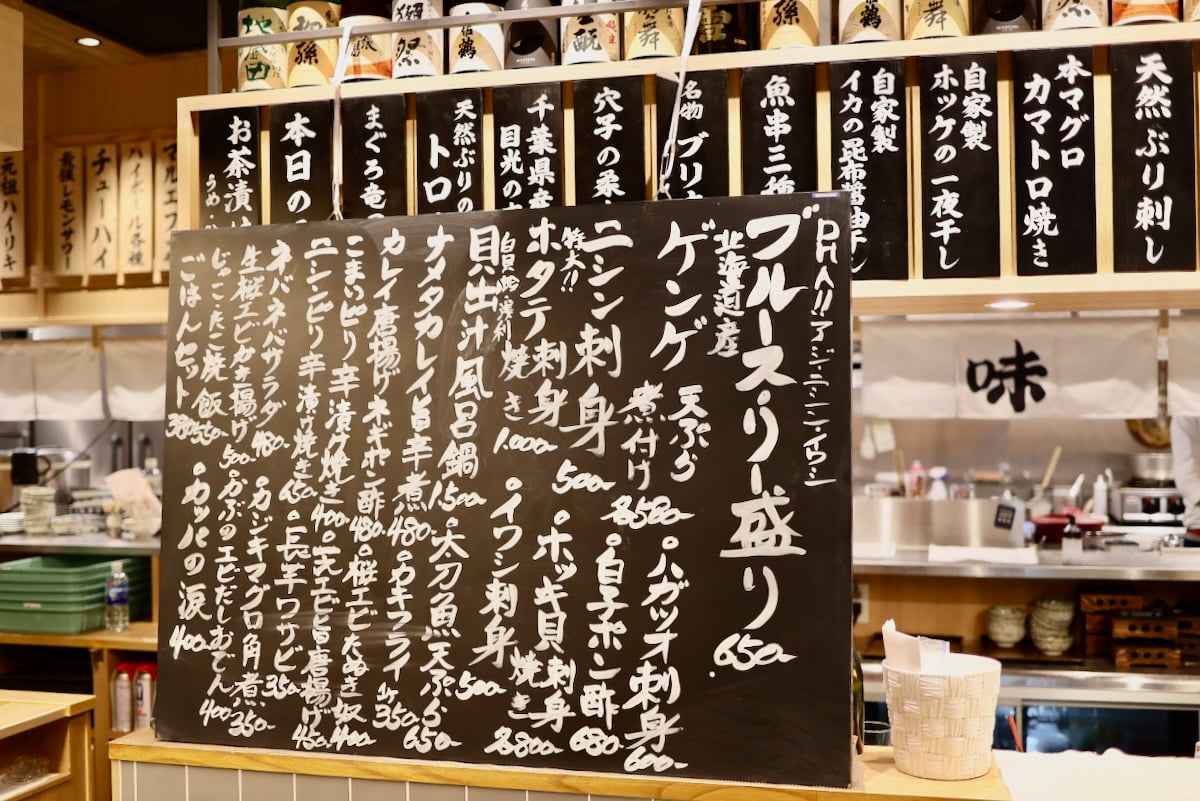 天然ぶり刺し
本マグロ
カマトロ焼き
自家製
ホッケの一夜干し
自家製
イカの昆布醤油干し
魚串三種
名物
ブリ
穴子の柔
千葉県産
目光の
天然ぶりの
トロ
まぐろ竜
本日の
お茶漬け
うめ
マルエフ
ハイボール各種
チューハイ
最強レモンサワー
元祖ハイリキ
味
DHA!!アジ・ニシン・イワシ
ブルースリー盛り 650-
北海道産
ゲンゲ 天ぷら 煮付け 各580-
・ハガツオ刺身 600-
ニシン刺身 500-
・白子ポン酢 680-
特大!!
ホタテ刺身
・ホッキ貝 刺身 焼き 各800-
焼き 1,000-
・イワシ刺身 500-
貝出汁風呂鍋 1,500-
・太刀魚天ぷら 650-
ナメタカレイ旨辛煮 480-
・カキフライ 1ヶ350-
カレイ唐揚げネギポン酢 480-
・桜エビたぬき奴 400-
こまいピリ辛漬け焼き 400-
・天エビ旨唐揚げ 450-
ニシンピリ辛漬け焼き 650-
・長芋ワサビ 350-
ネバネバサラダ 480-
・カジキマグロ角煮 350-
生桜エビかき揚げ 500-
・かぶのエビだしおでん 400-
じゃこたこ焼飯 550-
ごはんセット 380-
・カッパの涙 400-